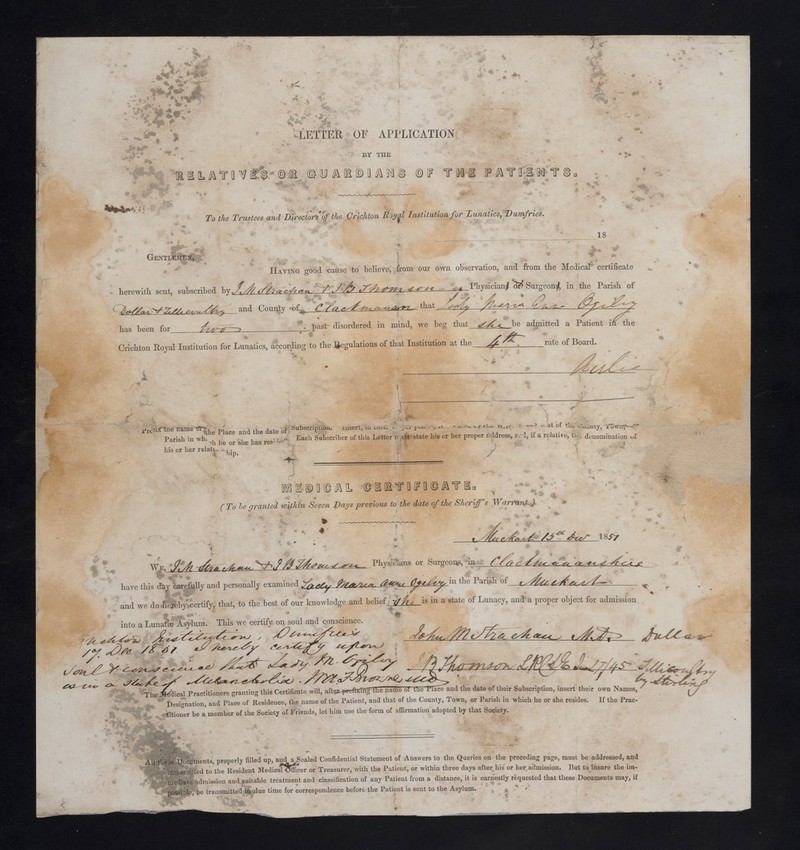 LETTER OF APPLICATION
BY THE
RELATIVES OR GUARDIANS OF THE PATIENTS.
To the Trustees and Directors of the Crichton Royal Institution for Lunatics, Dumfries.
18
GENTLEMEN,
HAVING good cause to believe, from our own observation, and from the Medical certificate
herewith sent, subscribed by J M Strachan & J B Thomson Physician or Surgeon, in the Parish of
Dollar & Tillicoultry and County of Clackmanan that Lady Maria Ann Ogilvy
has been for two past disordered in mind, we beg that she be admitted a Patient in the
Crichton Royal Institution for Lunatics, according to the Regulations of that Institution at the 4th rate of Board.
Airlie
the name of the Place and the date of Subscription. Insert, County, Town, or
Parish in wh h he or she has Each Subscriber of this Letter state his or her proper address, and, if a relative, the denomination of
his or her relat hip.
MEDICAL CERTIFICATE.
(To be granted within Seven Days previous to the date of the Sheriff's Warrant.)
Muckart 15th Decr 1851
We, J M Strachan & J B Thomson Physicians or Surgeons, in Clackmananshire
have this day carefully and personally examined Lady Maria Ann Ogilvy in the Parish of Muckart
and we do hereby certify, that, to the best of our knowledge and belief, she is in a state of Lunacy, and a proper object for admission
into a Lunatic Asylum. This we certify on soul and conscience.
John M Strachan M.D. Dollar
J B Thomson Tillicoultry
by Stirling
Institution, Dumfries
17 Dec 1851 I hereby certify upon
Soul & conscience that Lady M. Ogilvy
is in a state of Melancholia.
The Medical Practitioners granting this Certificate will, after prefixing the name of the Place and the date of their Subscription, insert their own Names,
Designation, and Place of Residence, the name of the Patient, and that of the County, Town, or Parish in which he or she resides. If the Prac-
titioner be a member of the Society of Friends, let him use the form of affirmation adopted by that Society.
Documents, properly filled up, and a Sealed Confidential Statement of Answers to the Queries on the preceding page, must be addressed, and
transmitted to the Resident Medical Officer or Treasurer, with the Patient, or within three days after his or her admission. But to insure the im-
mediate admission and suitable treatment and classification of any Patient from a distance, it is earnestly requested that these Documents may, if
possible, be transmitted in due time for correspondence before the Patient is sent to the Asylum.